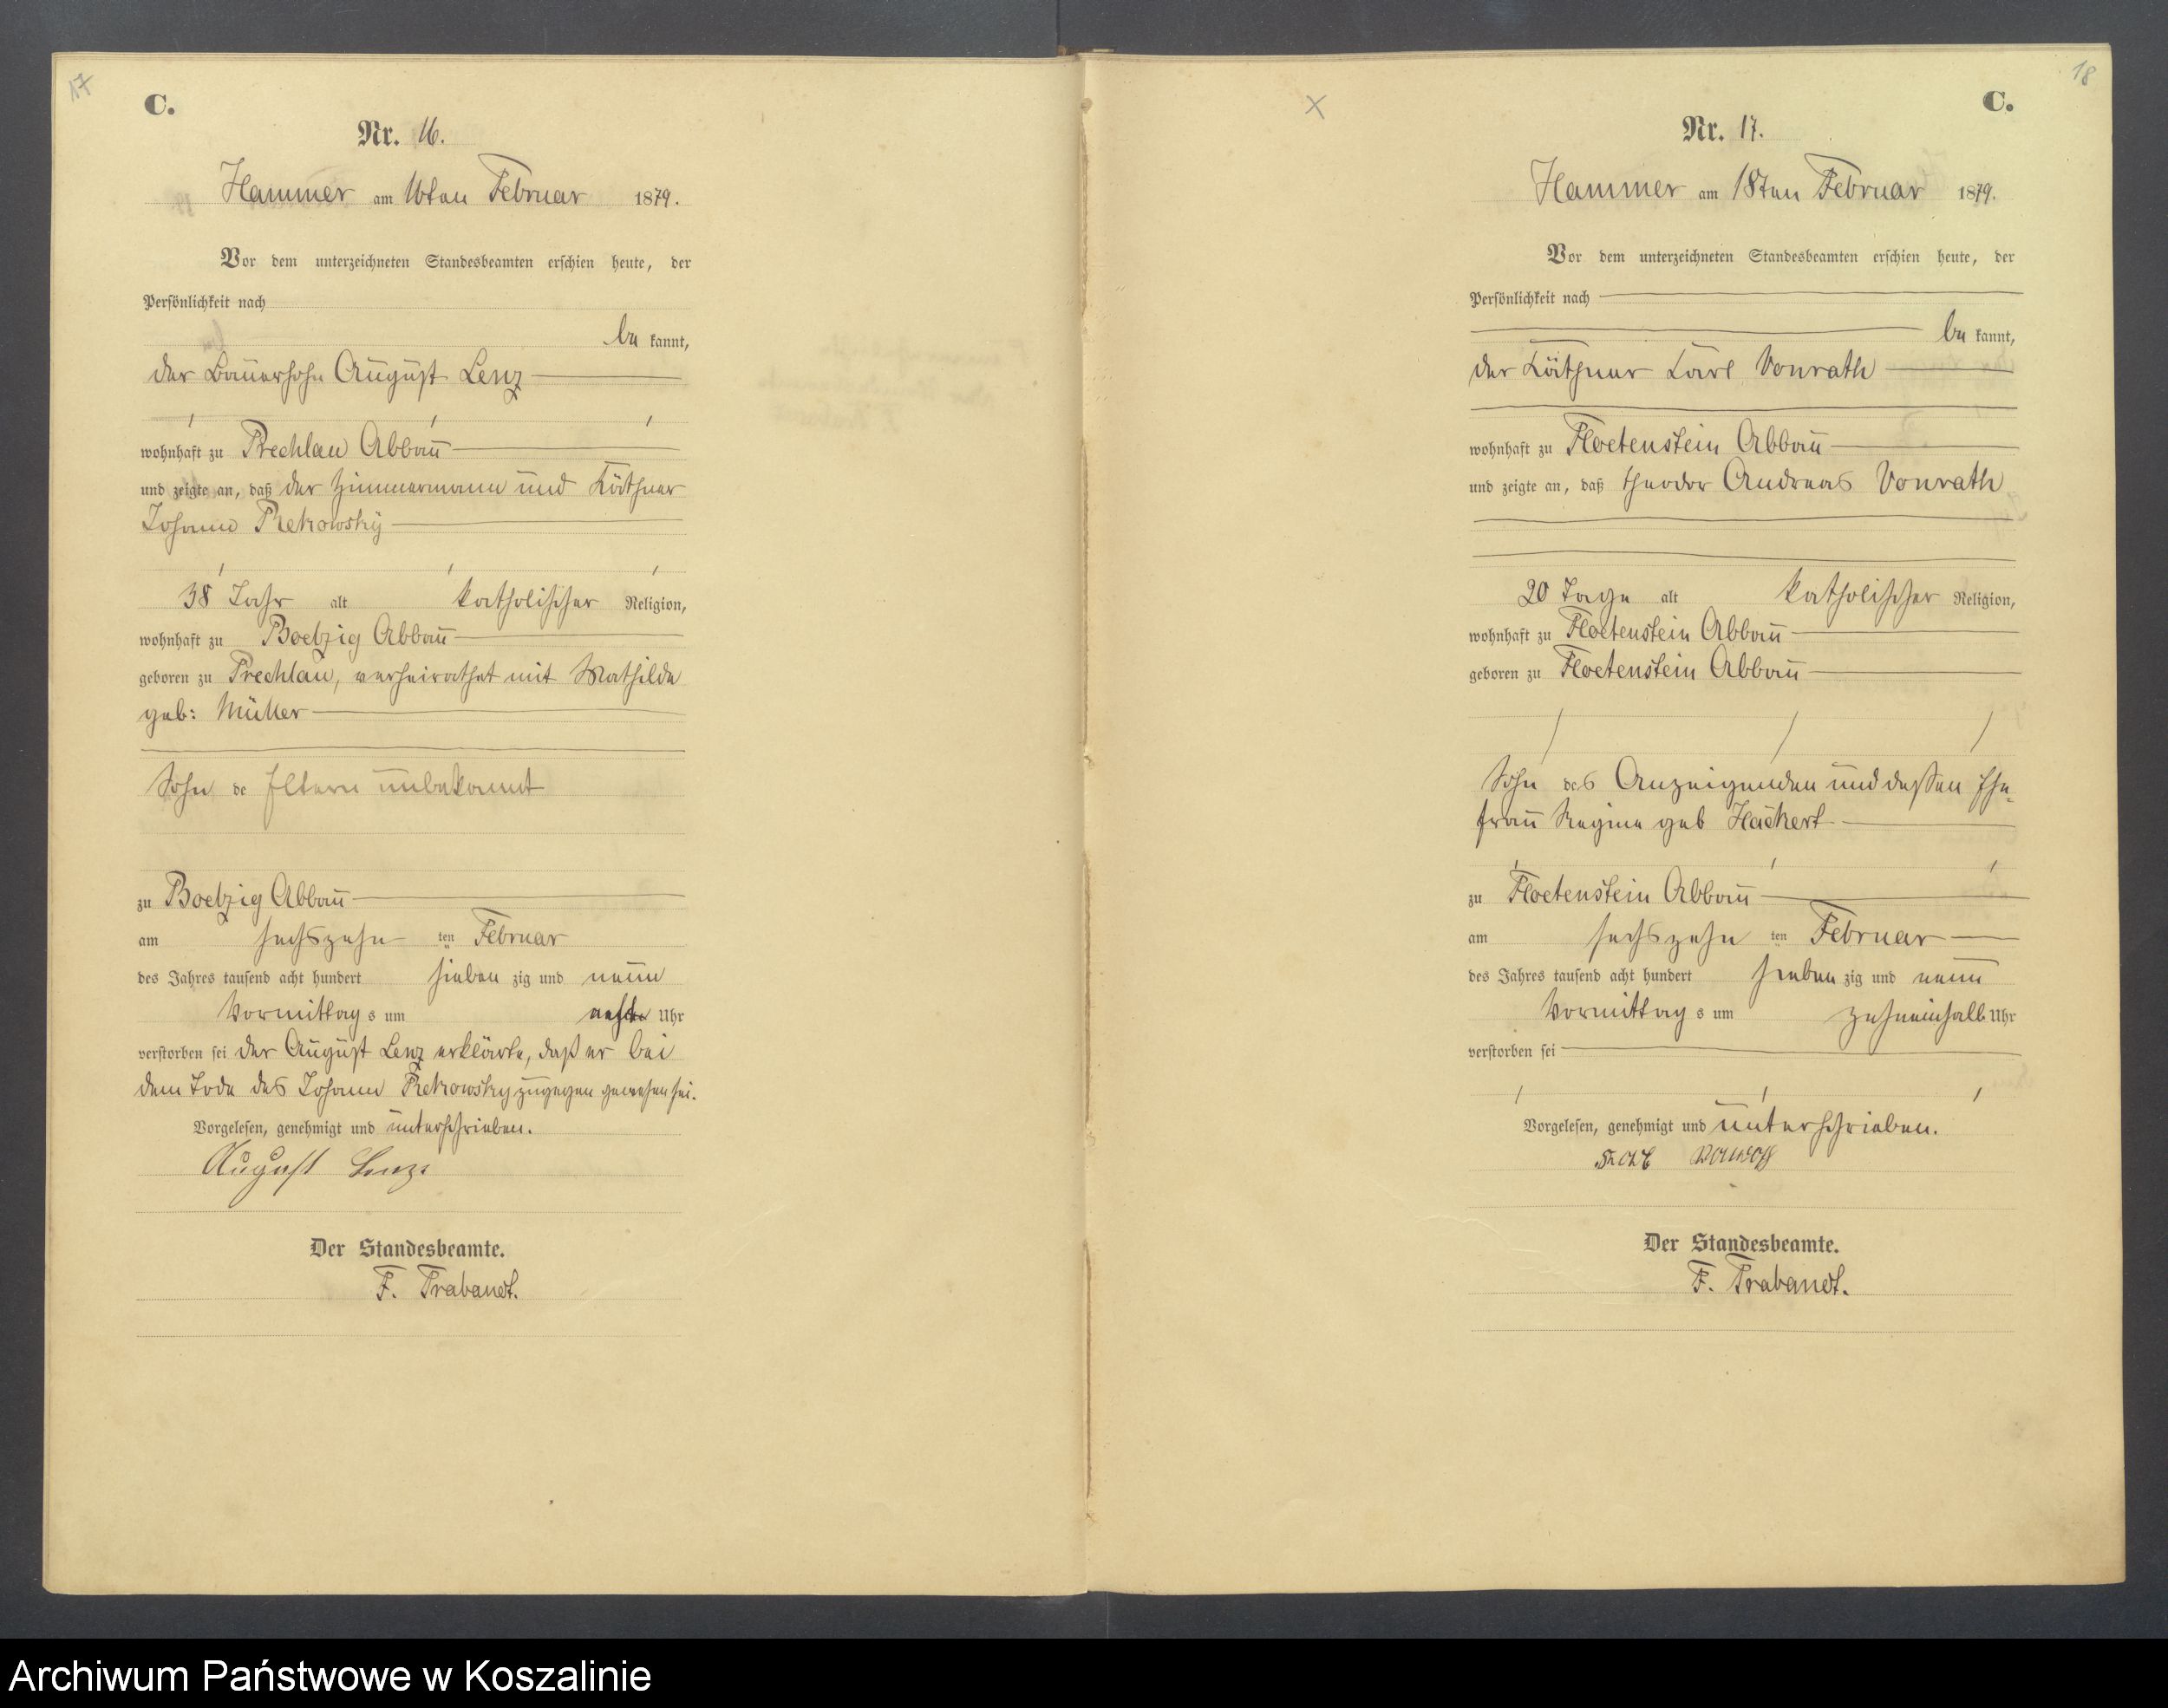 17
C.
Nr. 16.
Hammer am 16ten Februar 1879.
Vor dem unterzeichneten Standesbeamten erschien heute, der
Persönlichkeit nach
be kannt,
der Bauersohn August Lenz
wohnhaft zu Prechlau Abbau
und zeigte an, daß der Zimmermann und Käthner
Johann Rekowsky
38 Jahr alt katholischer Religion,
wohnhaft zu Boelzig Abbau
geboren zu Prechlau, verheirathet mit Mathilde
geb: Müller
Sohn de Eltern unbekannt
zu Boelzig Abbau
am sechszehn ten Februar
des Jahres tausend acht hundert sieben zig und neun
Vormittag s um Uhr
verstorben sei der August Lenz erklärte, daß er bei
dem Tode des Johann Rekowsky zugegen gewesen sei.
Vorgelesen, genehmigt und unterschrieben.
August Lenz
Der Standesbeamte.
F. Trabandt.
18
C.
Nr. 17.
Hammer am 18ten Februar 1879.
Vor dem unterzeichneten Standesbeamten erschien heute, der
Persönlichkeit nach
be kannt,
der Käthner Karl Vonrath
wohnhaft zu Floetenstein Abbau
und zeigte an, daß Theodor Andreas Vonrath
20 Tage alt katholischer Religion,
wohnhaft zu Floetenstein Abbau
geboren zu Floetenstein Abbau
Sohn des Anzeigenden und dessen Ehe-
frau Regine geb Hackert
zu Floetenstein Abbau
am sechszehn ten Februar
des Jahres tausend acht hundert sieben zig und neun
Vormittag s um zehneinhalb Uhr
verstorben sei
Vorgelesen, genehmigt und unterschrieben.
Der Standesbeamte.
F. Trabandt.
Archiwum Państwowe w Koszalinie